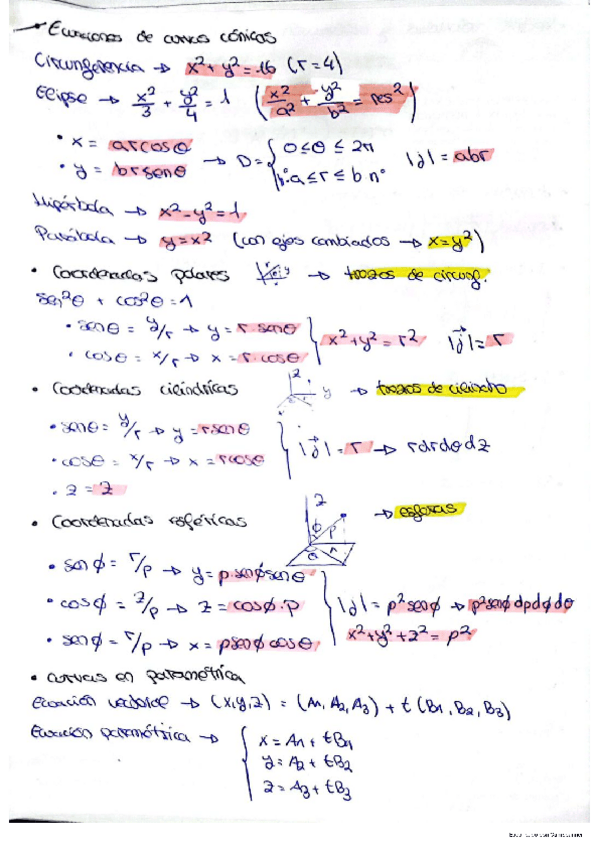 Ecuaciones de curvas cónicas
Circunferencia → x²+y²=16 (r=4)
Elipse → x²/3 + y²/4 = 1 (x²/a² + y²/b² = res²)
• x = arcosθ
• y = brsenθ → D = { 0≤θ≤2π a≤r≤b |J| = abr
Hipérbola → x²-y²=1
Parábola → y=x² (con ejes cambiados → x=y²)
• Coordenadas polares → trozos de circunf.
sen²θ + cos²θ = 1
• senθ = y/r → y = r senθ
• cosθ = x/r → x = r·cosθ } x²+y² = r² |J| = r
• Coordenadas cilíndricas z y → trozos de cilindro
• senθ = y/r → y = rsenθ
• cosθ = x/r → x = rcosθ } |J| = r → rdrdθdz
• z = z
• Coordenadas esféricas z ϕ ρ θ r → esferas
• senϕ = r/ρ → y = ρ·senϕsenθ
• cosϕ = z/ρ → z = cosϕ·ρ } |J| = ρ²senϕ → ρ²senϕdρdϕdθ
• senϕ = r/ρ → x = ρsenϕcosθ x²+y²+z² = ρ²
• curvas en paramétrica
Ecuación vectorial → (x,y,z) = (A₁,A₂,A₃) + t(B₁,B₂,B₃)
Ecuación paramétrica → { x = A₁+tB₁
y = A₂+tB₂
z = A₃+tB₃